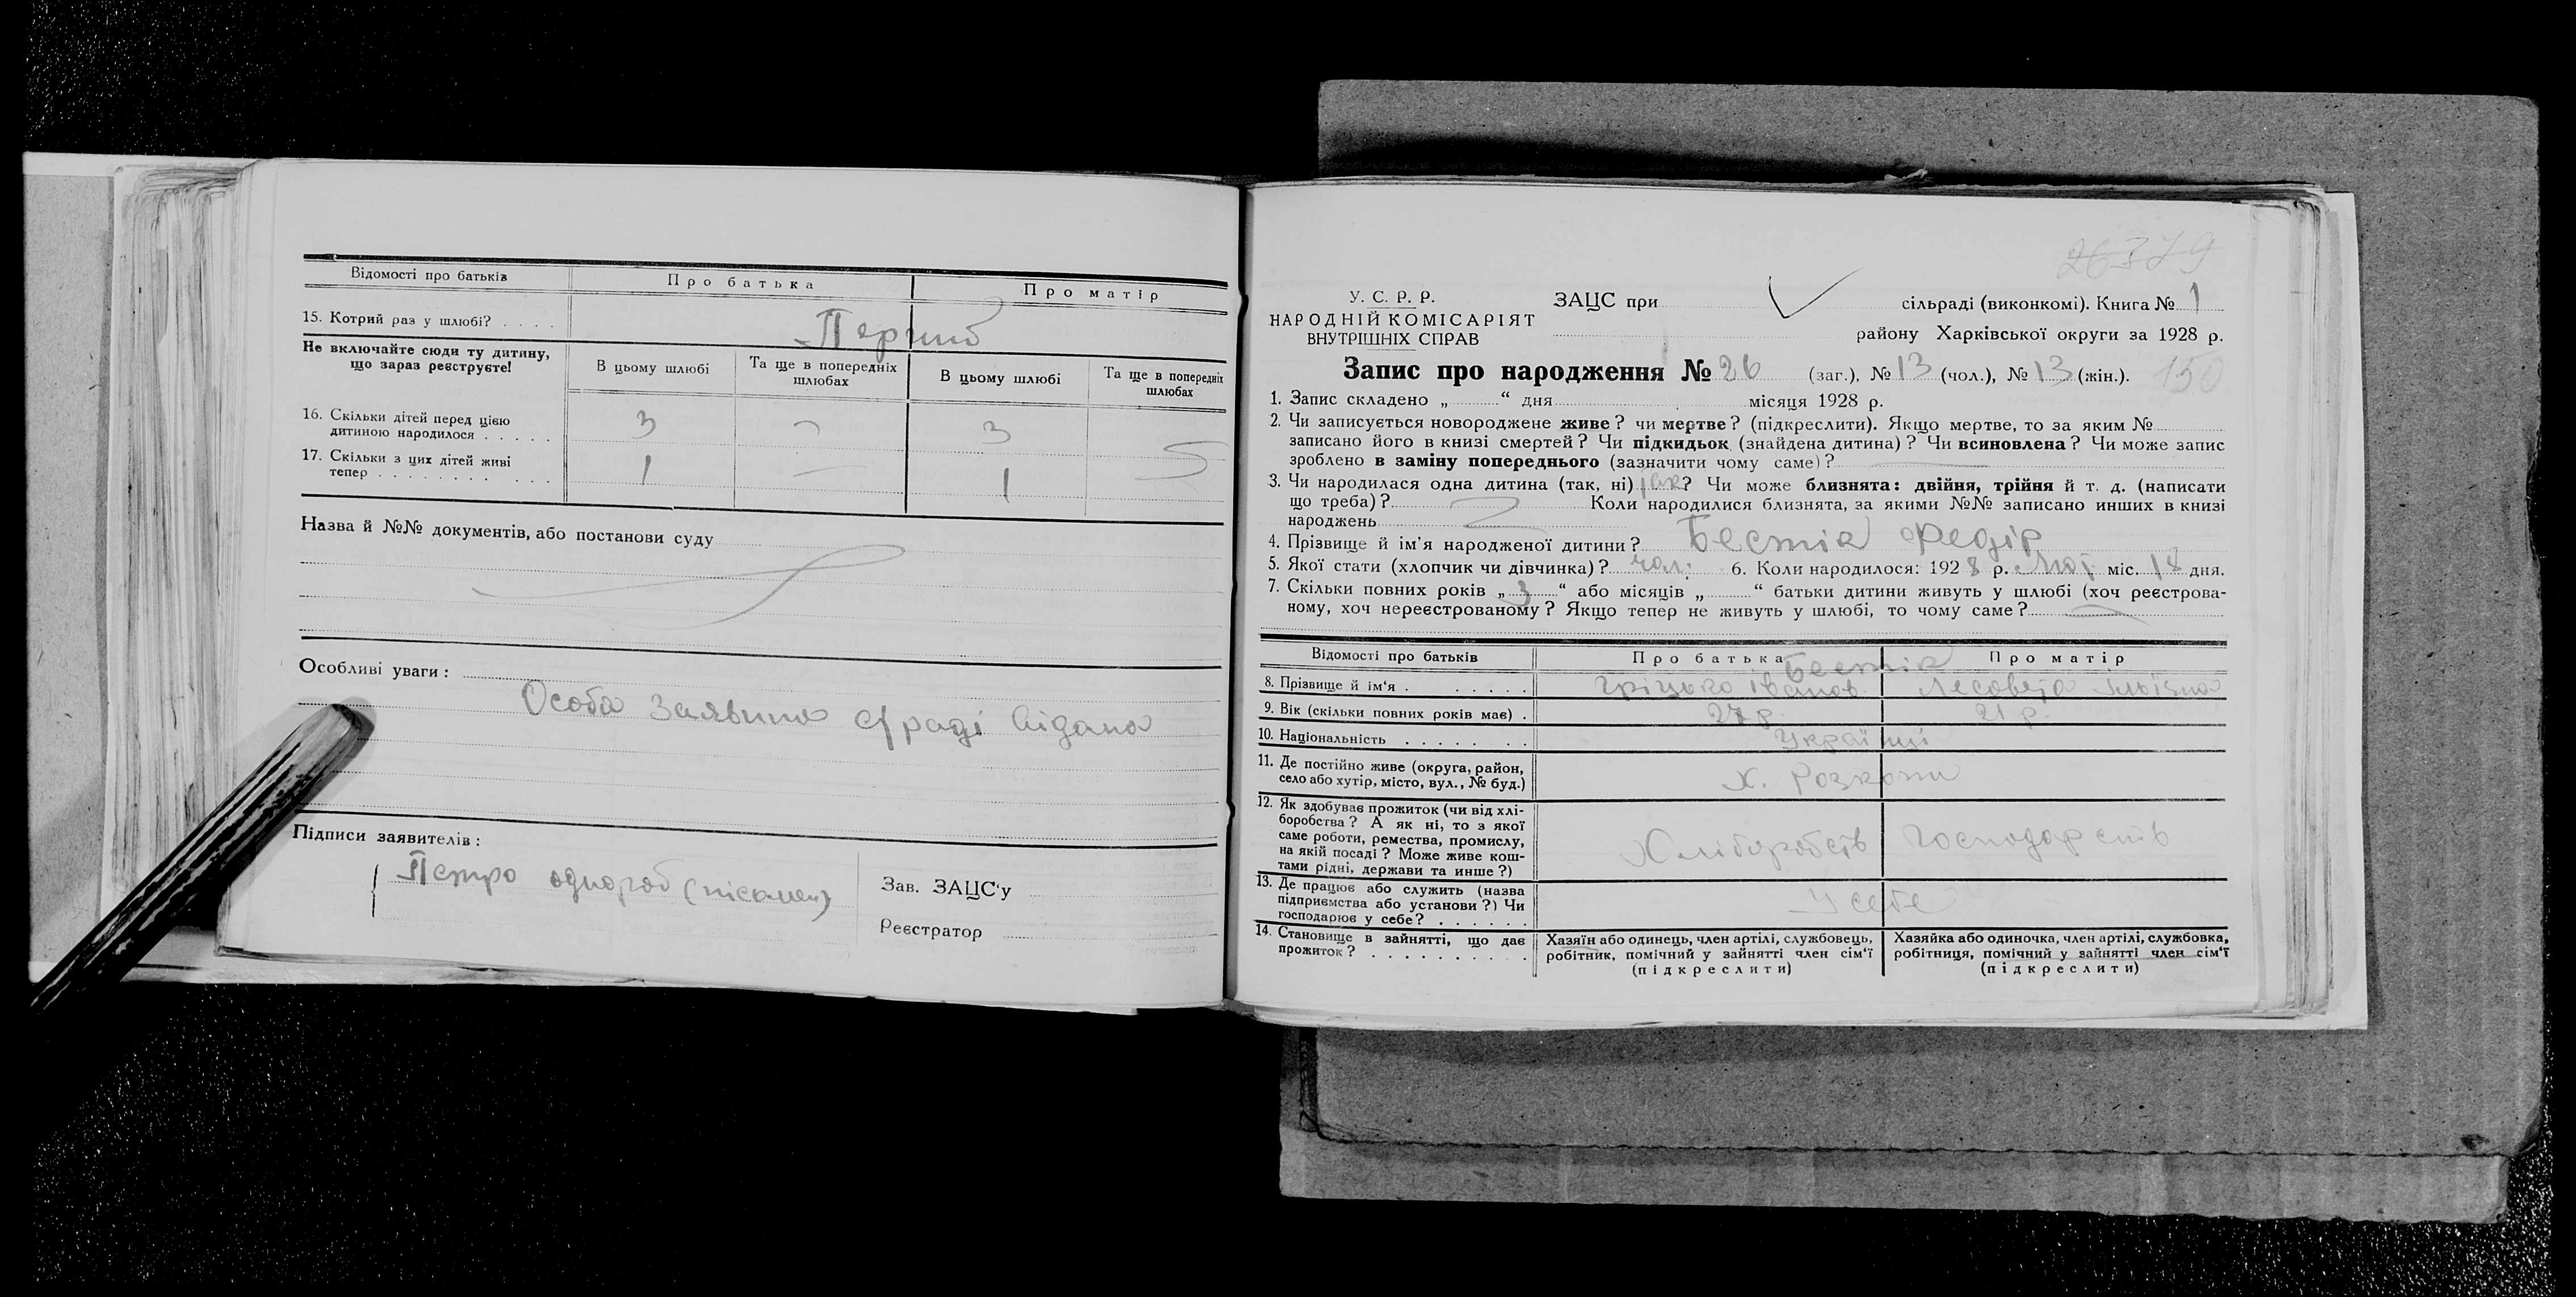 Відомості про батьків
Про батька
Про матір
15. Котрий раз у шлюбі? . . . .
Перший
Не включайте сюди ту дитину, що зараз реєструєте!
В цьому шлюбі
Та ще в попередніх шлюбах
В цьому шлюбі
Та ще в попередніх шлюбах
16. Скільки дітей перед цією
дитиною народилося . . . . .
3
3
17. Скільки з цих дітей живі
тепер . . . . . . . . . . .
1
1
Назва й №№ документів, або постанови суду
Особливі уваги:
Особа заявника с/раді відома
Підписи заявителів:
Петро
Зав. ЗАЦС'у
Реєстратор
26 379
У. С. Р. Р.
НАРОДНІЙ КОМІСАРІЯТ
ВНУТРІШНІХ СПРАВ
ЗАЦС при
сільраді (виконкомі). Книга № 1
району Харківської округи за 1928 р.
Запис про народження № 26 (заг.), № 13 (чол.), № 13 (жін.).
150
1. Запис складено „ “ дня місяця 1928 р.
2. Чи записується новороджене живе? чи мертве? (підкреслити). Якщо мертве, то за яким №
записано його в книзі смертей? Чи підкидьок (знайдена дитина)? Чи всиновлена? Чи може запис
зроблено в заміну попереднього (зазначити чому саме)?
3. Чи народилася одна дитина (так, ні) так? Чи може близнята: двійня, трійня й т. д. (написати
що треба)? Коли народилися близнята, за якими №№ записано инших в книзі
народжень
4. Прізвище й ім'я народженої дитини? Бестік Федір
5. Якої стати (хлопчик чи дівчинка)? чол. 6. Коли народилося: 1928 р. Лют. міс. 18 дня.
7. Скільки повних років „ 3 “ або місяців „ “ батьки дитини живуть у шлюбі (хоч реєстрова-
ному, хоч нереєстрованому? Якщо тепер не живуть у шлюбі, то чому саме?
Відомості про батьків
Про батька
Про матір
Бестік
8. Прізвище й ім'я . . . . . .
Гріцько Іванов
Лесовета Ільїчна
9. Вік (скільки повних років має) .
27 р.
21 р.
10. Національність . . . . . . .
Україн̈ці
11. Де постійно живе (округа, район,
село або хутір, місто, вул., № буд.)
х. Розкопи
12. Як здобуває прожиток (чи від хлі-
боробства? А як ні, то з якої
саме роботи, ремества, промислу,
на якій посаді? Може живе кош-
тами рідні, держави та инше?)
Хліборобств
Господарств
13. Де працює або служить (назва
підприємства або установи?) Чи
господарює у себе? . . . . . .
У себе
14. Становище в зайнятті, що дає
прожиток? . . . . . . . . . .
Хазяїн або одинець, член артілі, службовець,
робітник, помічний у зайнятті член сім'ї
(підкреслити)
Хазяйка або одиночка, член артілі, службовка,
робітниця, помічний у зайнятті член сім'ї
(підкреслити)